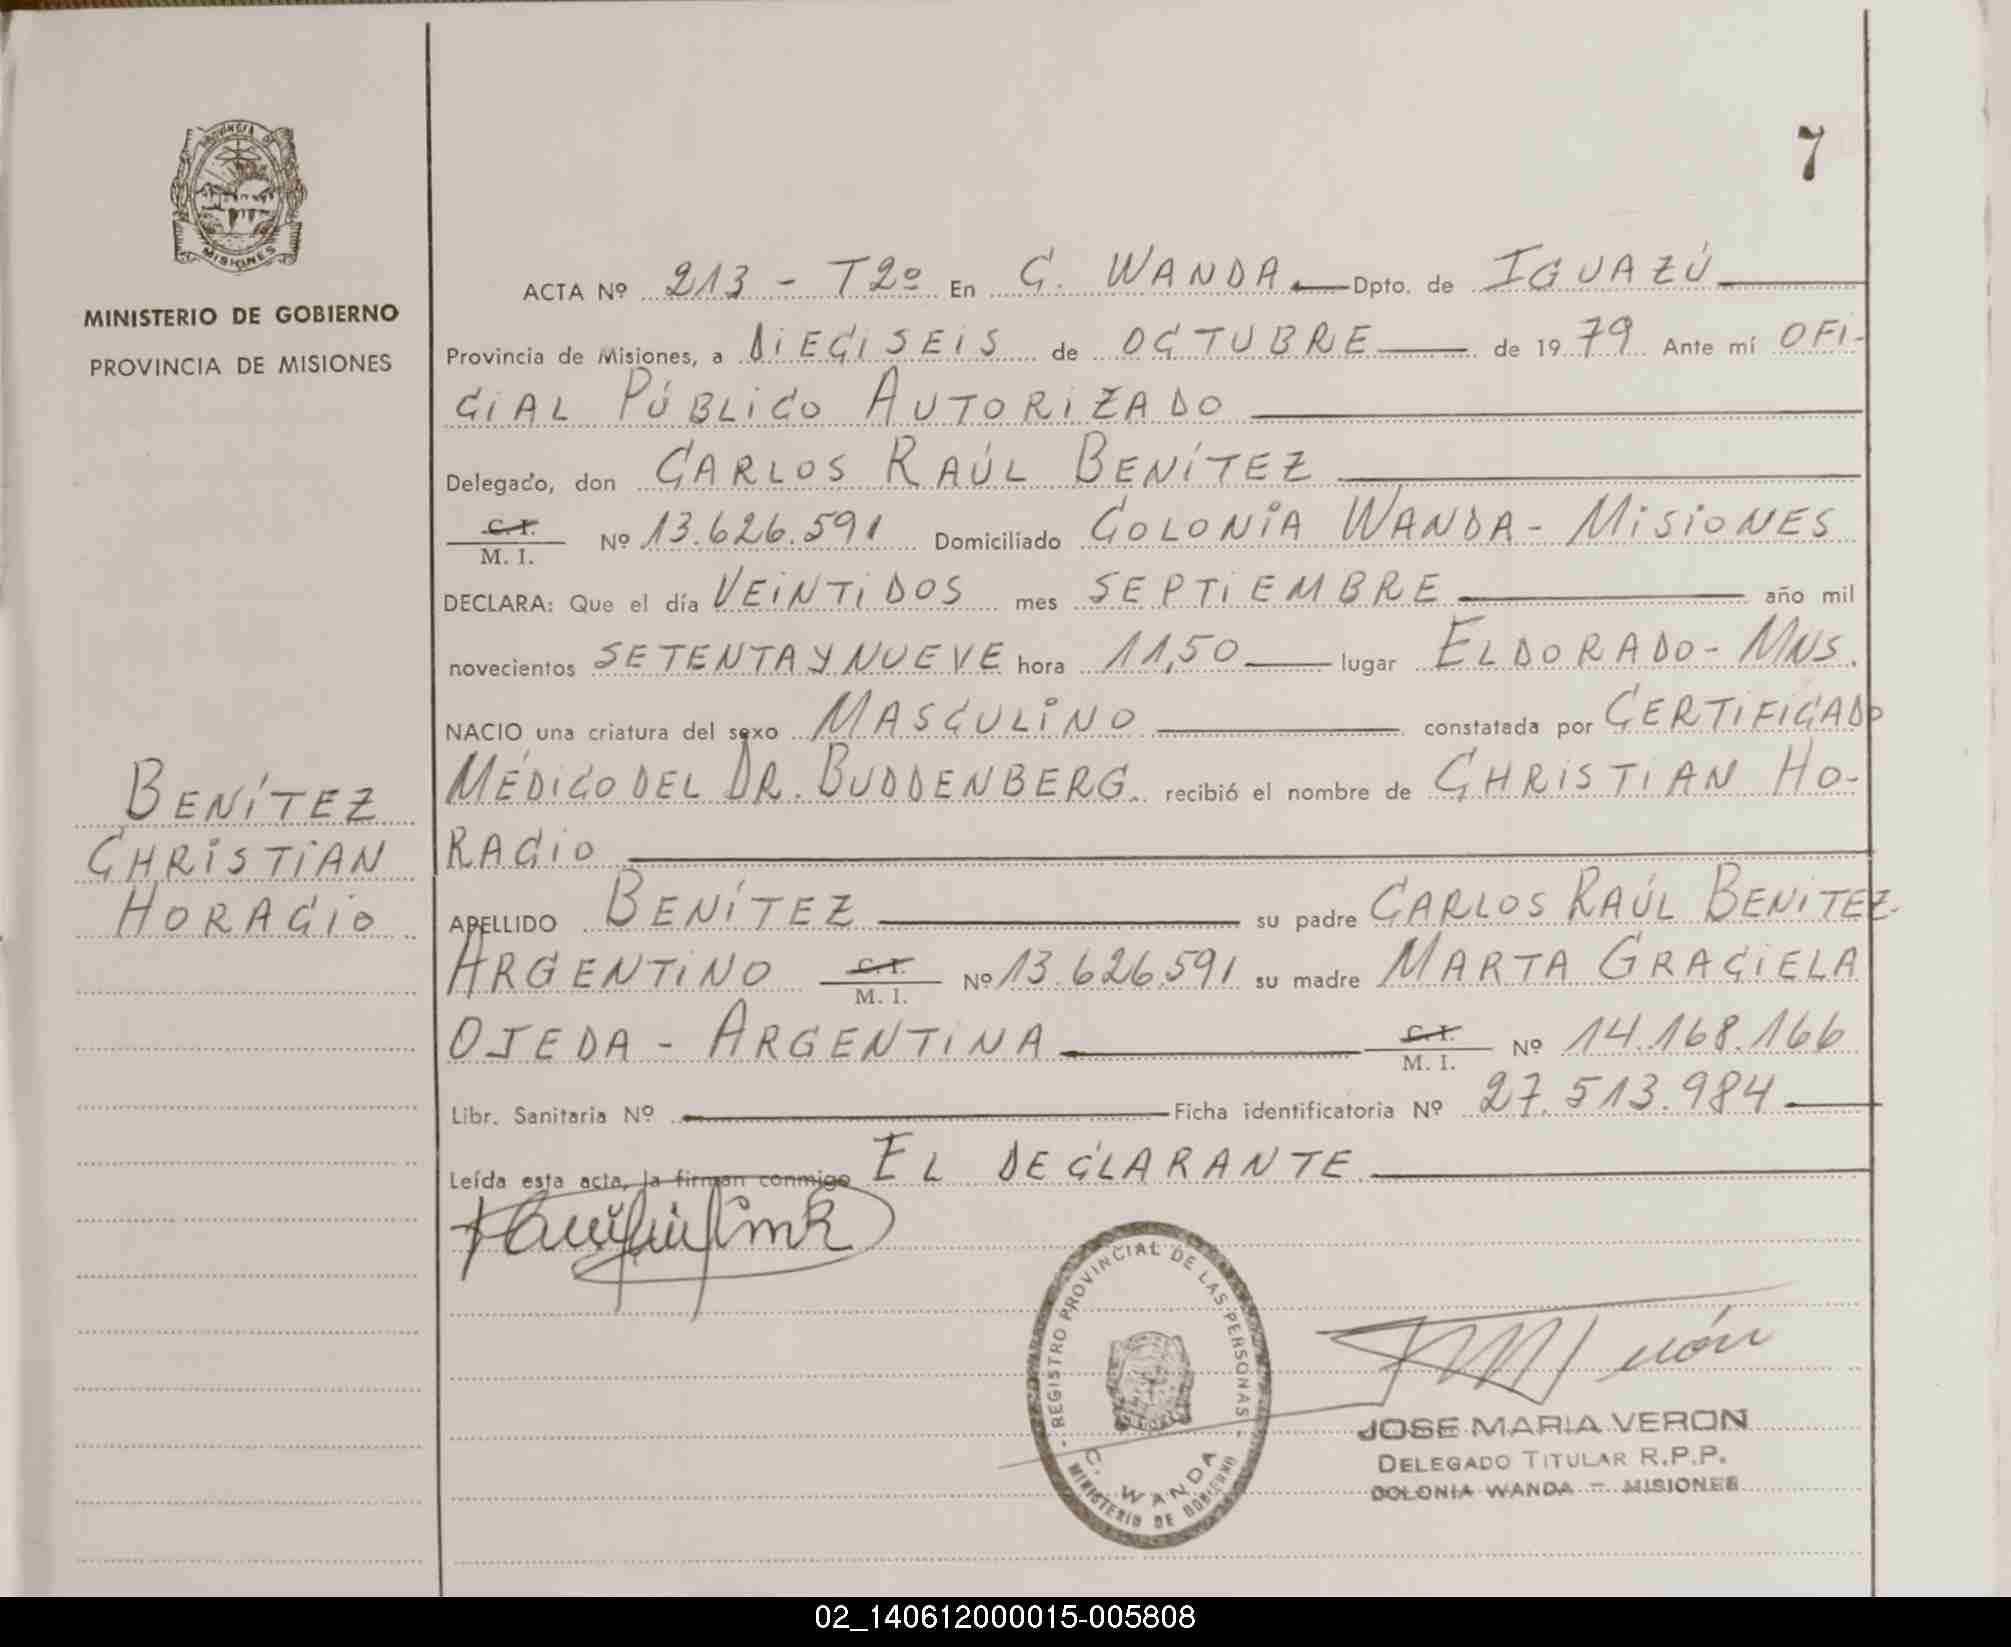 PROVINCIA DE
MISIONES
MINISTERIO DE GOBIERNO
PROVINCIA DE MISIONES
BENÍTEZ
CHRISTIAN
HORACIO
7
ACTA Nº 213 - T2º En C. WANDA Dpto. de IGUAZÚ
Provincia de Misiones, a DIECISEIS de OCTUBRE de 1979 Ante mí OFI-
CIAL PÚBLICO AUTORIZADO
Delegado, don CARLOS RAÚL BENÍTEZ
C. I.
M. I. Nº 13.626.591 Domiciliado COLONIA WANDA - MISIONES
DECLARA: Que el día VEINTIDOS mes SEPTIEMBRE año mil
novecientos SETENTA Y NUEVE hora 11,50 lugar ELDORADO - MNS.
NACIO una criatura del sexo MASCULINO constatada por CERTIFICADO
MÉDICO DEL DR. BUDDENBERG. recibió el nombre de CHRISTIAN HO-
RACIO
APELLIDO BENÍTEZ su padre CARLOS RAÚL BENITEZ-
ARGENTINO C. I.
M. I. Nº 13.626.591 su madre MARTA GRACIELA
OJEDA - ARGENTINA C. I.
M. I. Nº 14.168.166
Libr. Sanitaria Nº Ficha identificatoria Nº 27.513.984
Leída esta acta, la firman conmigo EL DECLARANTE
- REGISTRO PROVINCIAL DE LAS PERSONAS -
C. WANDA
MINISTERIO DE GOBIERNO
JOSE MARIA VERON
DELEGADO TITULAR R.P.P.
COLONIA WANDA - MISIONES
02_140612000015-005808